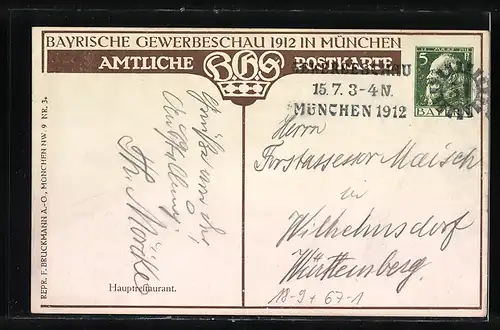 BAYRISCHE GEWERBESCHAU 1912 IN MÜNCHEN
AMTLICHE BGS POSTKARTE
GEWERBESCHAU
15.7. 3-4 N.
MÜNCHEN 1912
5 PF
BAYERN
Grüße von der
Ausstellung
Th. Mörike
Herrn
Forstassessor Maisch
in
Wilhelmsdorf
Württemberg.
18-9 + 67-1
Hauptrestaurant.
REPR. F. BRUCKMANN A.-G., MÜNCHEN NW. 9 NR. 3.